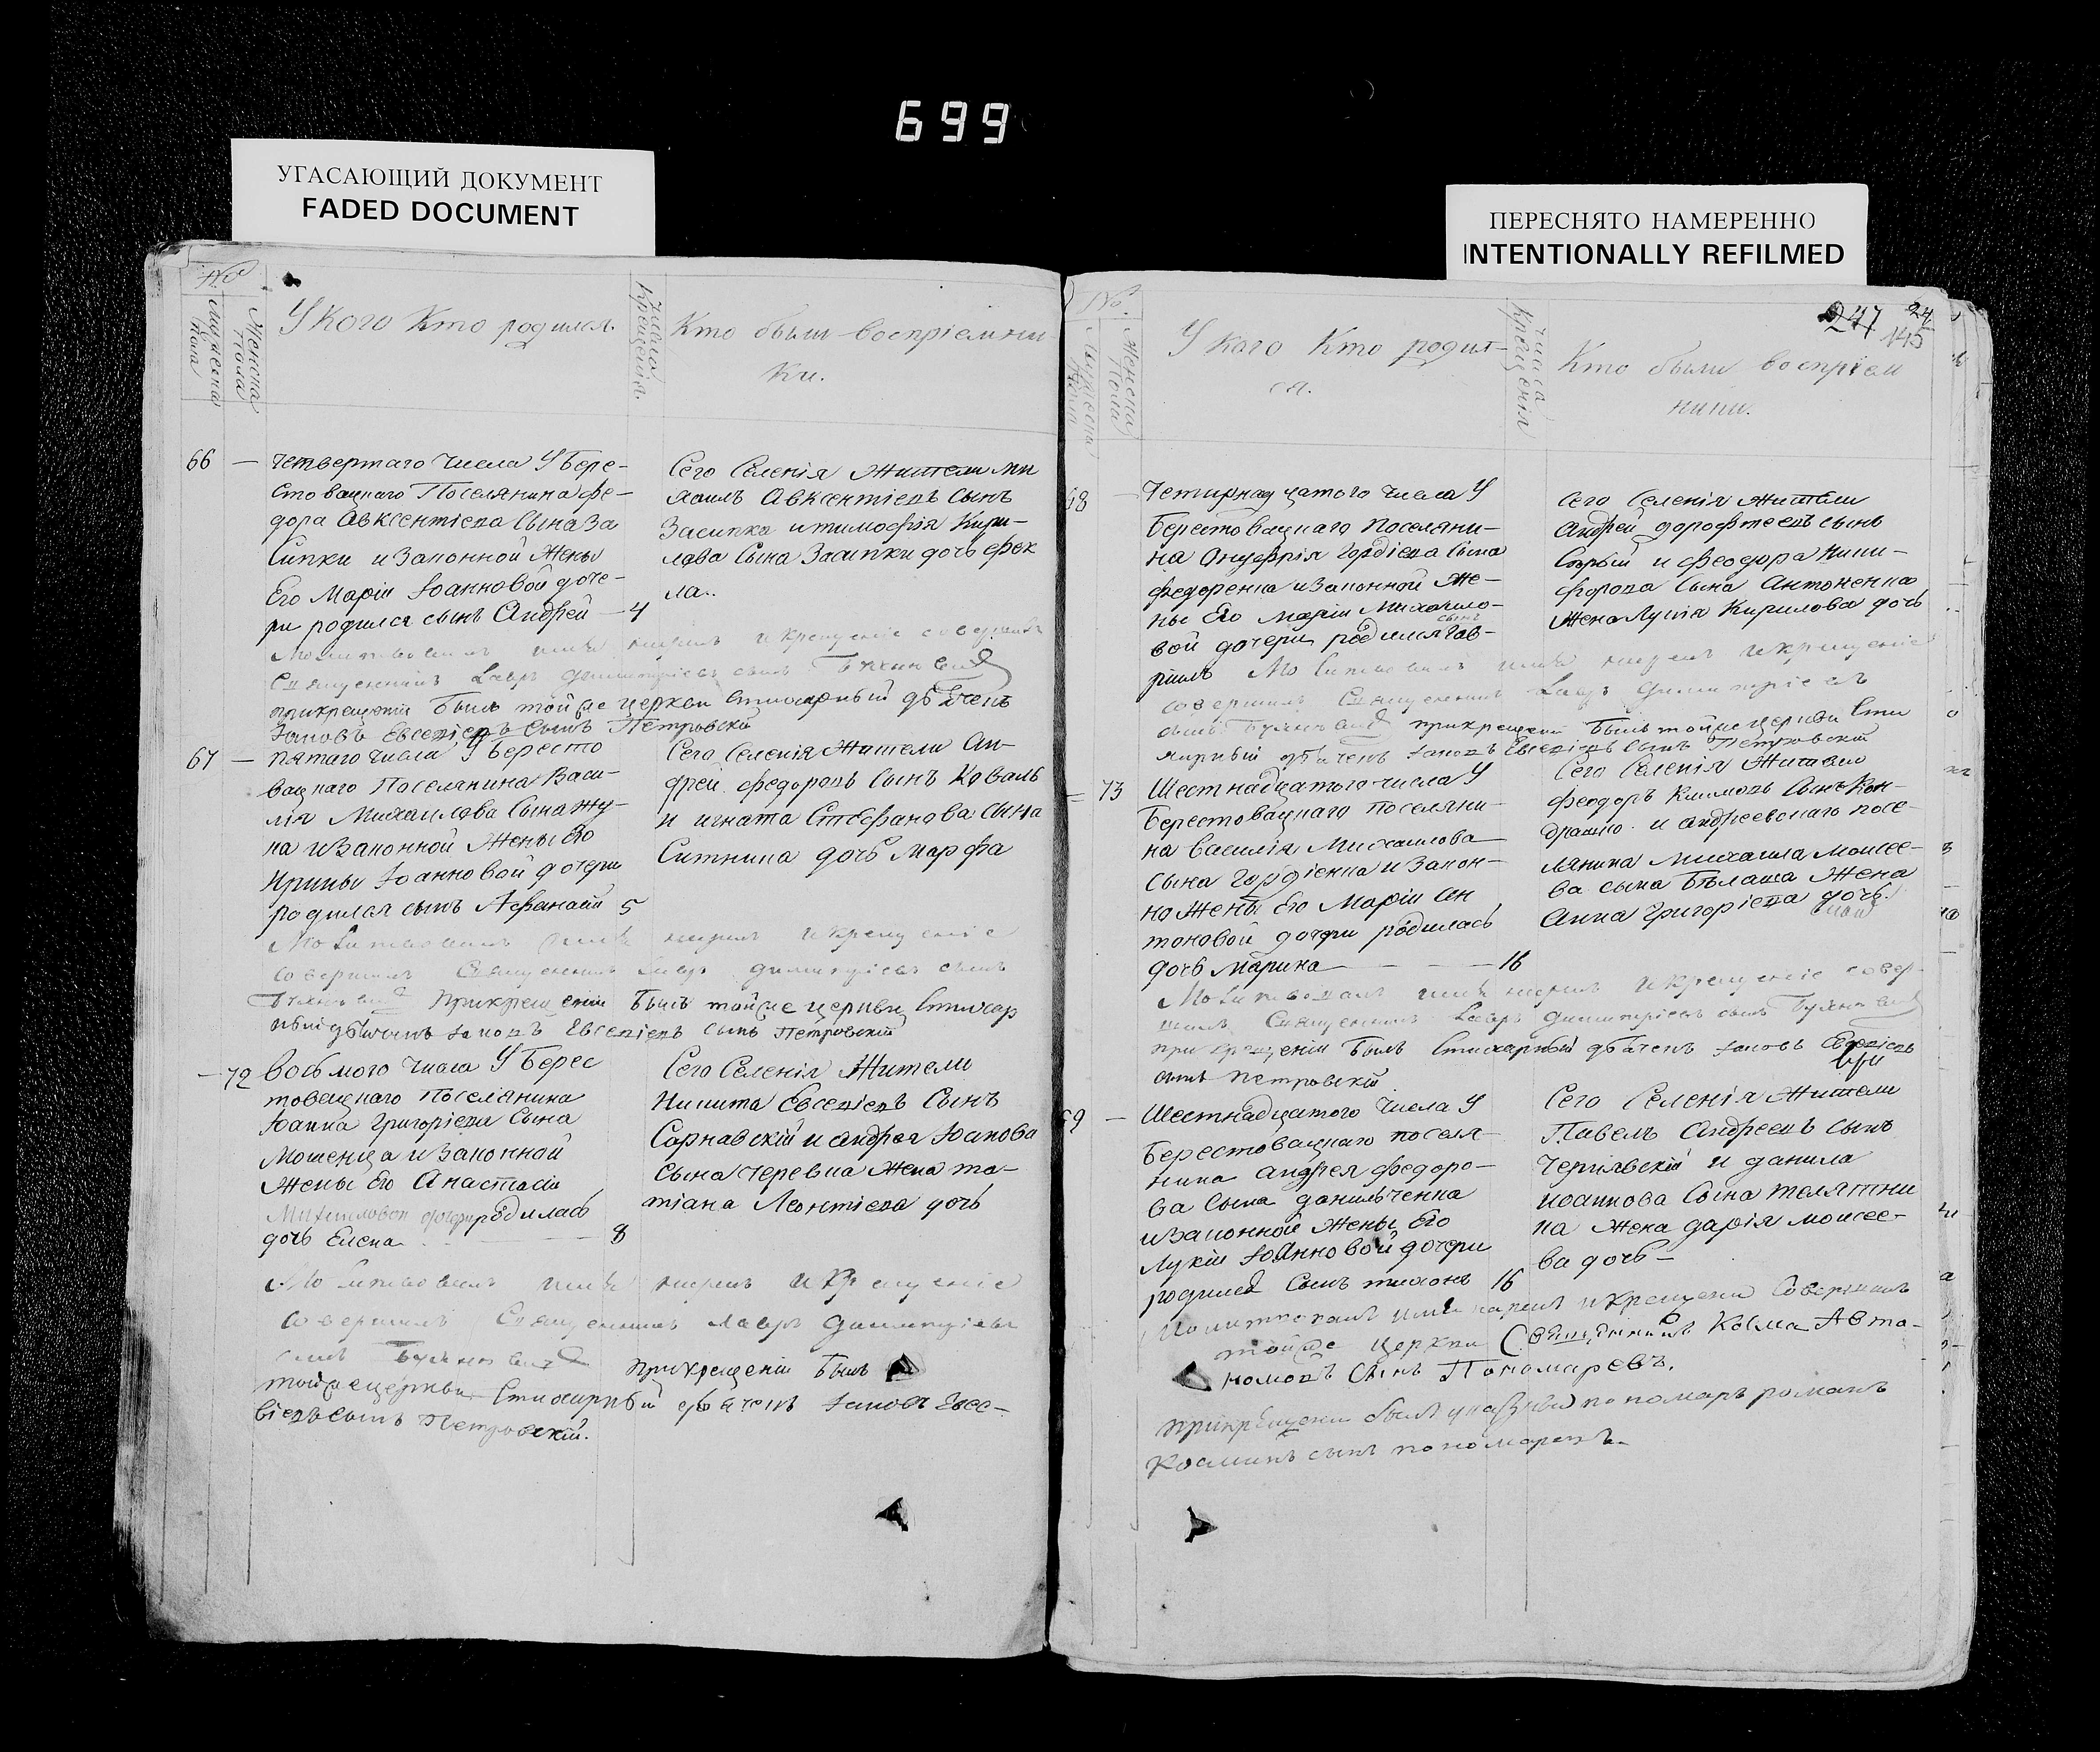 699
УГАСАЮЩИЙ ДОКУМЕНТ
FADED DOCUMENT
ПЕРЕСНЯТО НАМЕРЕННО
INTENTIONALLY REFILMED
№
Мужеска Пола
Женска Пола
У кого кто родился.
Числа Крещенія.
Кто были воспріемни-
ки.
66 — Четвертаго числа У Бере-
стовацкаго Поселянина Фе-
дора Авксентіева Сына За
сипки и Законной Жены
Его Маріи Іоанновой доче-
ри родился сынъ Андрей — 4
Сего Селенія Жители Ми
хаилъ Авксентіевъ Сынъ
Засипка и Тимофія Кири-
лова Сына Засипки дочь Фек
ла..
Молитвовалъ имя нарекъ и крещеніе совершилъ
Священникъ Лавръ Димитріевъ сынъ
прикрещеніи былъ тойже церкви Стихарный дьяченъ
Іаковъ Евсевіевъ Сынъ Петровскій
67 — Пятаго числа У Бересто
вацкаго Поселянина Васи-
лія Михаилова Сына Жу-
ка и Законной Жены Его
Ирины Іоанновой дочери
родился сынъ Афанасій 5
Сего Селенія Жители Ан-
дрей Федоровъ Сынъ Коваль
и Игната Стефанова Сына
Ситника дочь Марфа
Молитвовалъ имя нарекъ и крещеніе
совершилъ Священникъ Лавръ Димитріевъ сынъ
прикрещеніи былъ тойже церкви Стихар
ный дьяченъ Іаковъ Евсевіевъ сынъ Петровскій
— 72 Восьмого числа У Берес
товацкаго Поселянина
Іоанна Григоріева Сына
Мошенца и Законной
Жены Его Анастасіи
Михаиловой дочери родилась
дочь Елена — 8
Сего Селенія Жители
Никита Евсевіевъ Сынъ
Сарнавскій и Андрея Іоанова
Сына Черевка Жена Та-
тіана Леонтіева дочь
Молитвовалъ имя нарекъ и крещеніе
совершилъ Священникъ Лавръ Димитріевъ
сынъ прикрещеніи былъ
тойже церкви Стихарный дьяченъ Іаковъ Евсе-
віевъ сынъ Петровскій.
247
24
145
№
Мужеска Пола
Женска Пола
У кого Кто родил-
ся.
Числа Крещенія
Кто были воспріем
ники.
68 — Четирнадцатого числа У
Берестовацкаго Поселяни-
на Онуфрія Гордіева Сына
Федоренка и Законной Же-
ны Его Маріи Михаило-
вой дочери родился сынъ Гав-
ріилъ
Сего Селенія Жители
Андрей Дорофтеевъ сынъ
Сѣрый и Феодора Ники-
форова Сына Антоненка
Жена Лукія Кирилова дочь
Молитвовалъ имя нарекъ и крещеніе
совершилъ Священникъ Лавръ Димитріевъ
сынъ прикрещеніи былъ тойже церкви Сти
харный дьяченъ Іаковъ Евсевіевъ Сынъ Петровскій
— 73 Шестнадцатого числа У
Берестовацкаго поселяни-
на Василія Михаилова
Сына Гордіенка и Закон-
но Жены Его Маріи Ан
тоновой дочери родилась
дочь Марина — 16
Сего Селенія Житель
Феодоръ Климовъ Сынъ Кон-
драшко и Андреевскаго посе-
лянина Михаила Моисее-
ва сына Бѣлаша Жена
Анна Григоріева дочь.
Молитвовалъ имя нарекъ и крещеніе совер-
шилъ Священникъ Лавръ Димитріевъ сынъ
при крещеніи былъ Стихарный дьяченъ Іаковъ Евсевіевъ
сынъ Петровскій
69 — Шестнадцатого числа У
Берестовацкаго поселя-
нина Андрея Федоро-
ва Сына Данильченка
и Законной Жены Его
Лукіи Іоанновой дочери
родился Сынъ Тихонъ 16
Сего Селенія Жители
Павелъ Андреевъ сынъ
Чернявскій и Данила
Иоаннова Сына Телятни
ка Жена Дарія Моисее-
ва дочь —
Молитвовалъ имя нарекъ и крещеніе Совершилъ
тойже Церкви Священникъ Косма Авто-
номовъ Сынъ Пономаревъ.
прикрещеніи былъ указный пономарь Романъ
Косминъ сынъ пономаревъ.